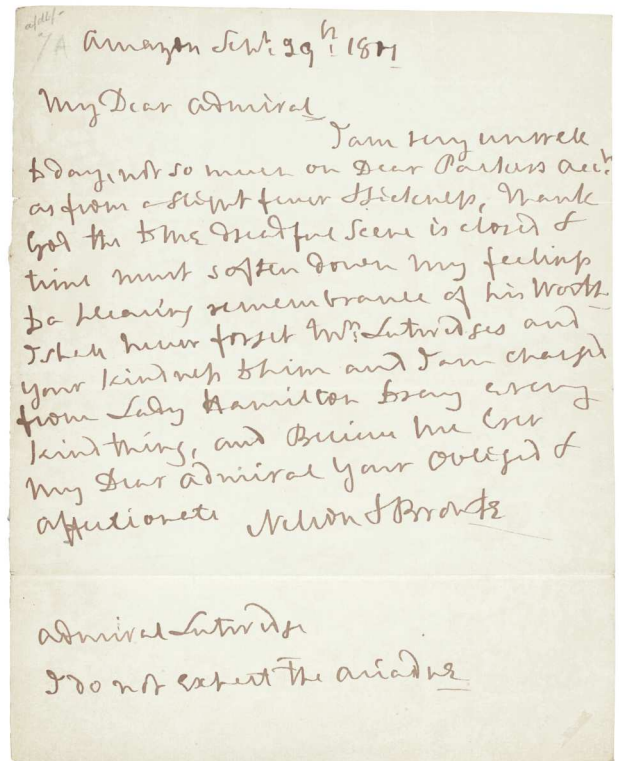 Amazon Sept: 29th: 1801
My Dear Admiral
I am very unwell
to day, not so much on Dear Parkers acct:
as from a slight fever & sickness, thank
God the to me dreadful scene is closed &
time must soften down my feelings
to a pleasing remembrance of his Worth
I shall never forget Mrs: Lutwidges and
your kindness to him and I am charged
from Lady Hamilton to say every
kind thing, and Believe me Ever
My Dear Admiral Your Obliged &
affectionate Nelson & Bronte
Admiral Lutwidge
I do not expect the Ariadne